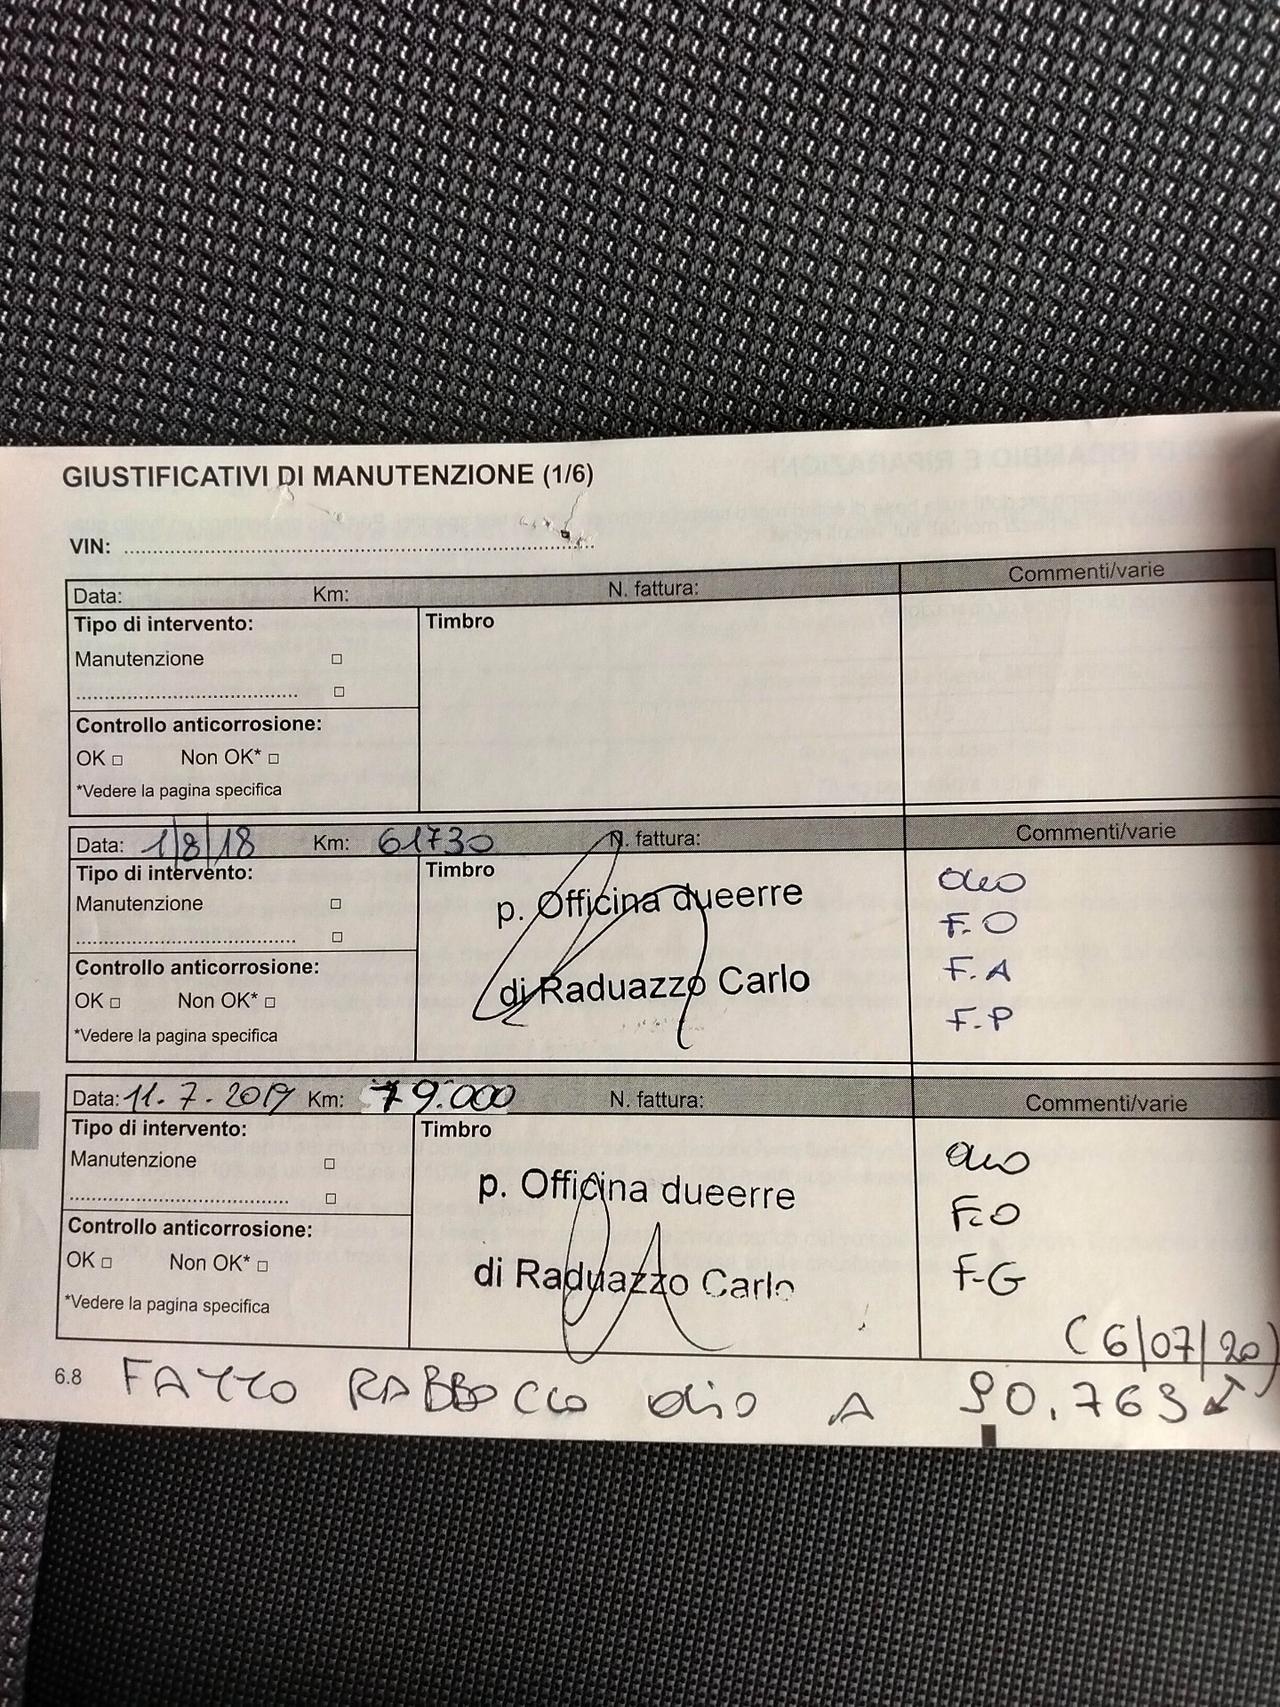 GIUSTIFICATIVI DI MANUTENZIONE (1/6)
VIN:
Data: Km: N. fattura: Commenti/varie
Tipo di intervento: Timbro
Manutenzione □
□
Controllo anticorrosione:
OK □ Non OK* □
*Vedere la pagina specifica
Data: 1/8/18 Km: 61730 N. fattura: Commenti/varie
Tipo di intervento: Timbro
Manutenzione □
□
Controllo anticorrosione:
OK □ Non OK* □
*Vedere la pagina specifica
p. Officina dueerre
di Raduazzo Carlo
olio
F.O
F.A
F.P
Data: 11.7.2019 Km: 79.000 N. fattura: Commenti/varie
Tipo di intervento: Timbro
Manutenzione □
□
Controllo anticorrosione:
OK □ Non OK* □
*Vedere la pagina specifica
p. Officina dueerre
di Raduazzo Carlo
olio
F.O
F-G
(6/07/20)
6.8 FATTO RABBOCCO olio A 90.763